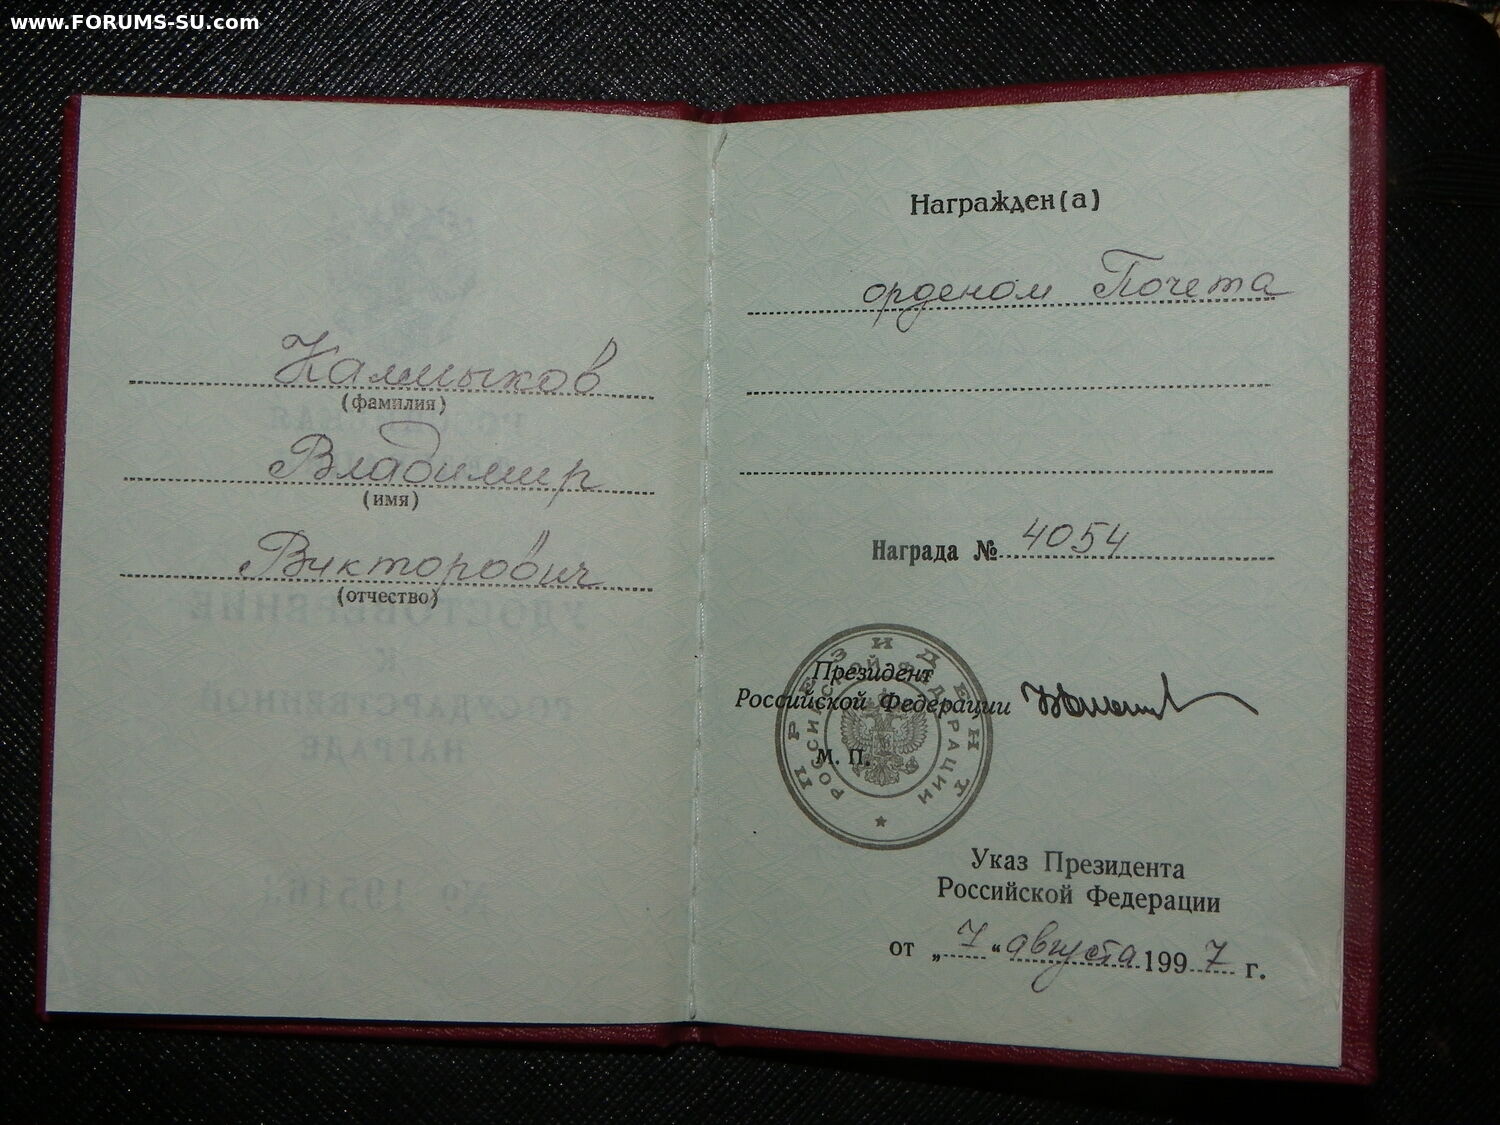 www.FORUMS-SU.com
Калмыков
(фамилия)
Владимир
(имя)
Викторович
(отчество)
УДОСТОВЕРЕНИЕ
К
ГОСУДАРСТВЕННОЙ
НАГРАДЕ
Награжден(а)
орденом Почета
Награда № 4054
ПРЕЗИДЕНТ
РОССИЙСКОЙ ФЕДЕРАЦИИ
Президент
Российской Федерации
М. П.
Указ Президента
Российской Федерации
от „ 7 “ августа 1997 г.